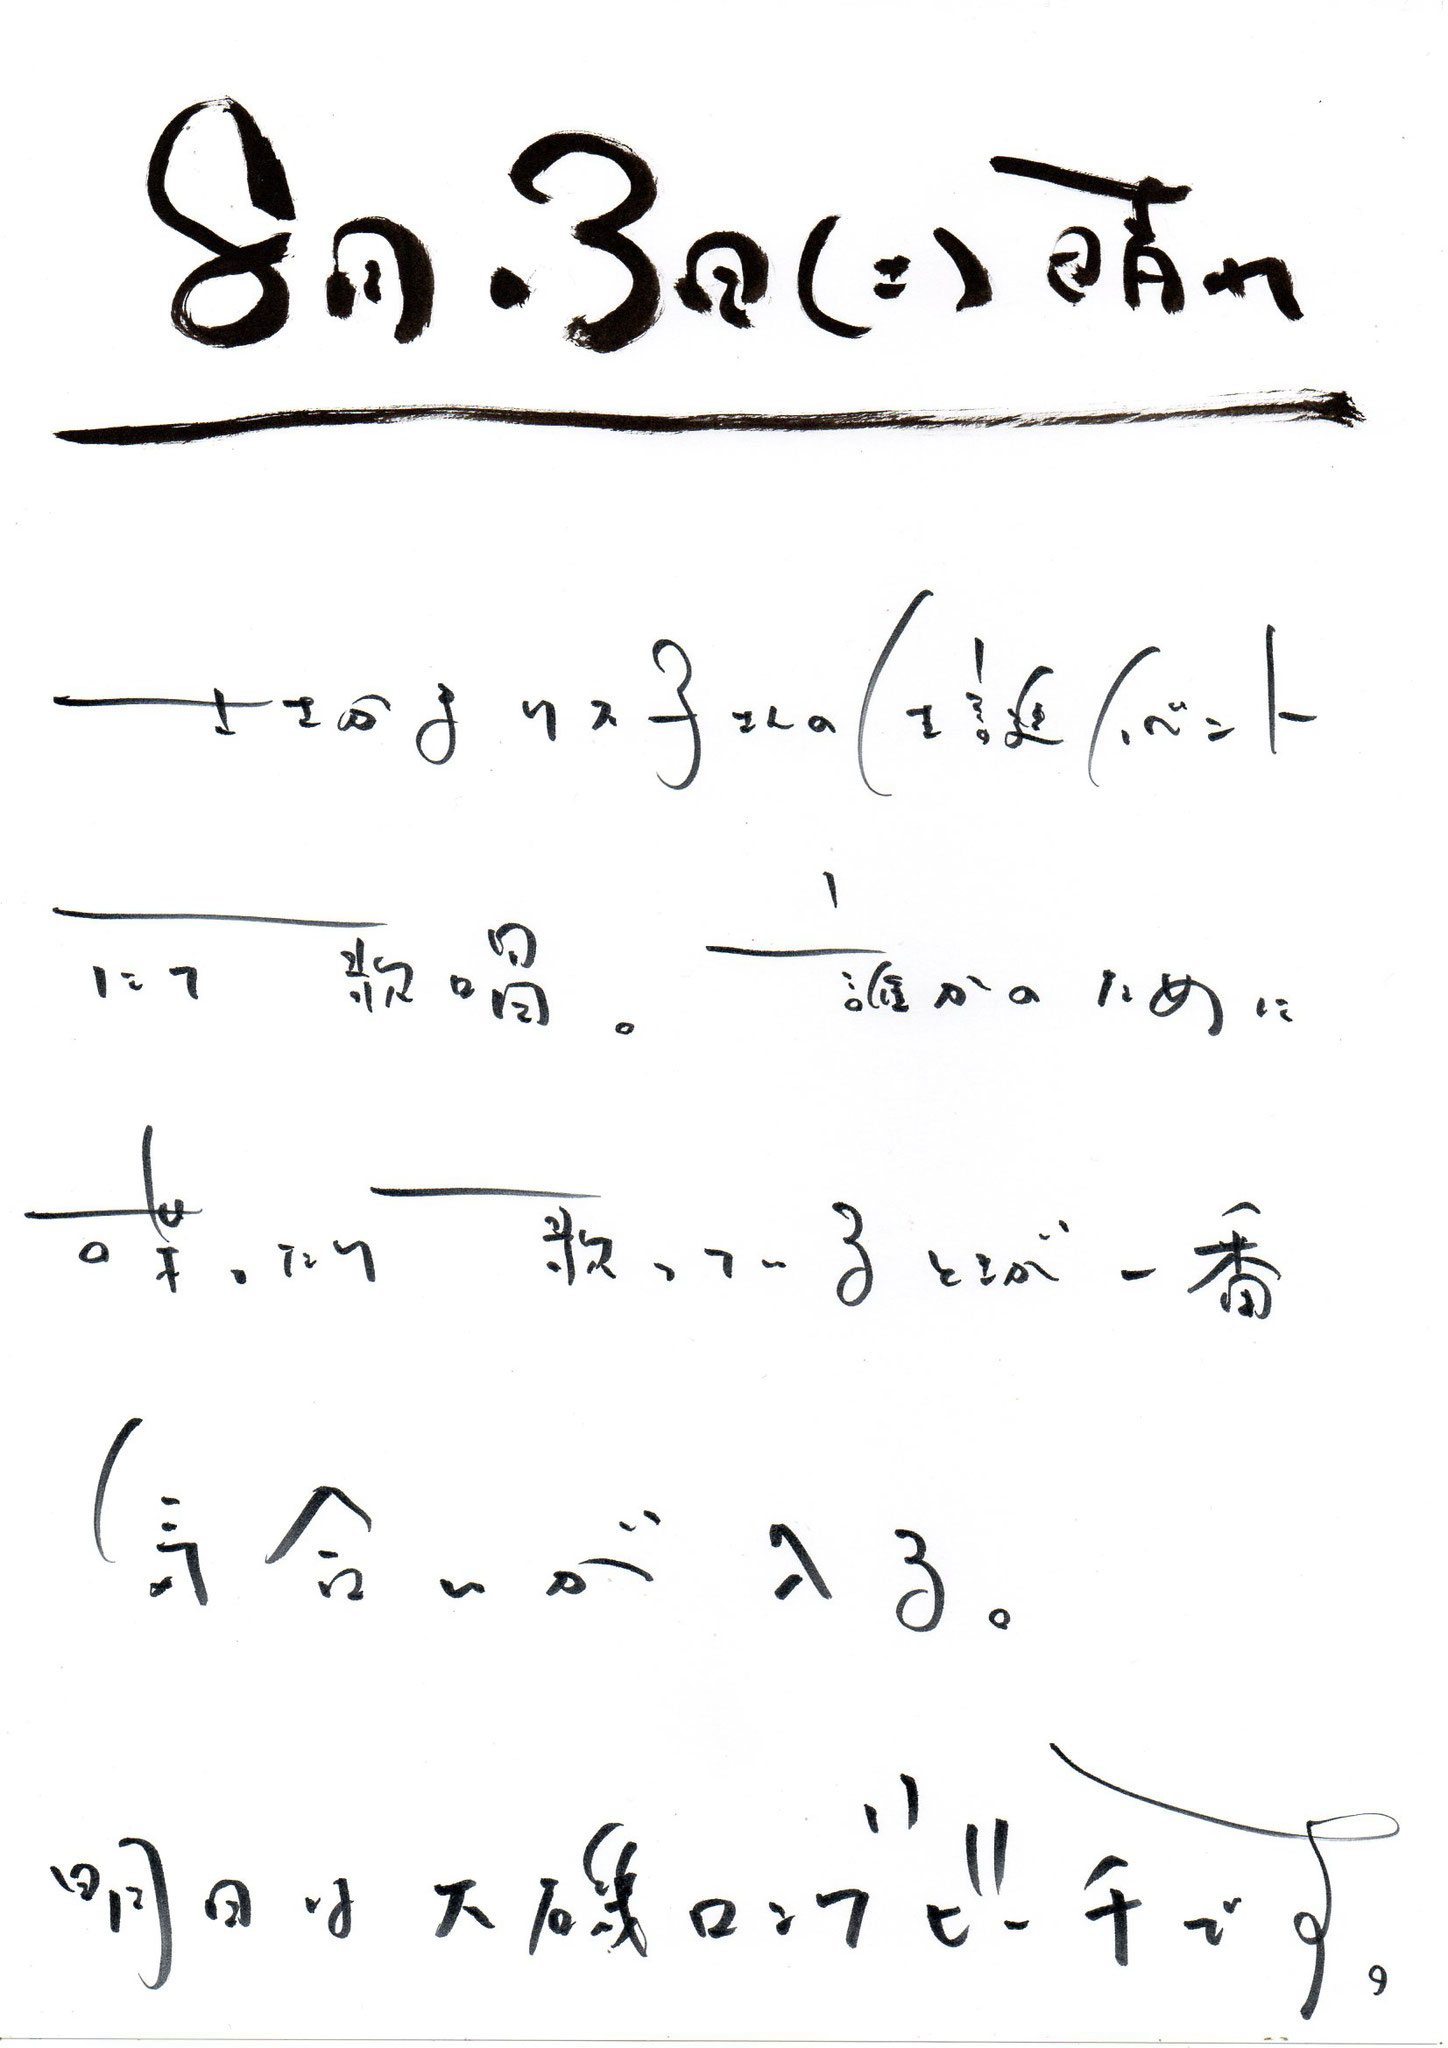 8月・3日(ニ)晴れ
リス子さんの生誕イベント
にて歌唱。誰かのために
喋ったり歌っているときが一番
気合いが入る。
明日は大磯ロングビーチです。